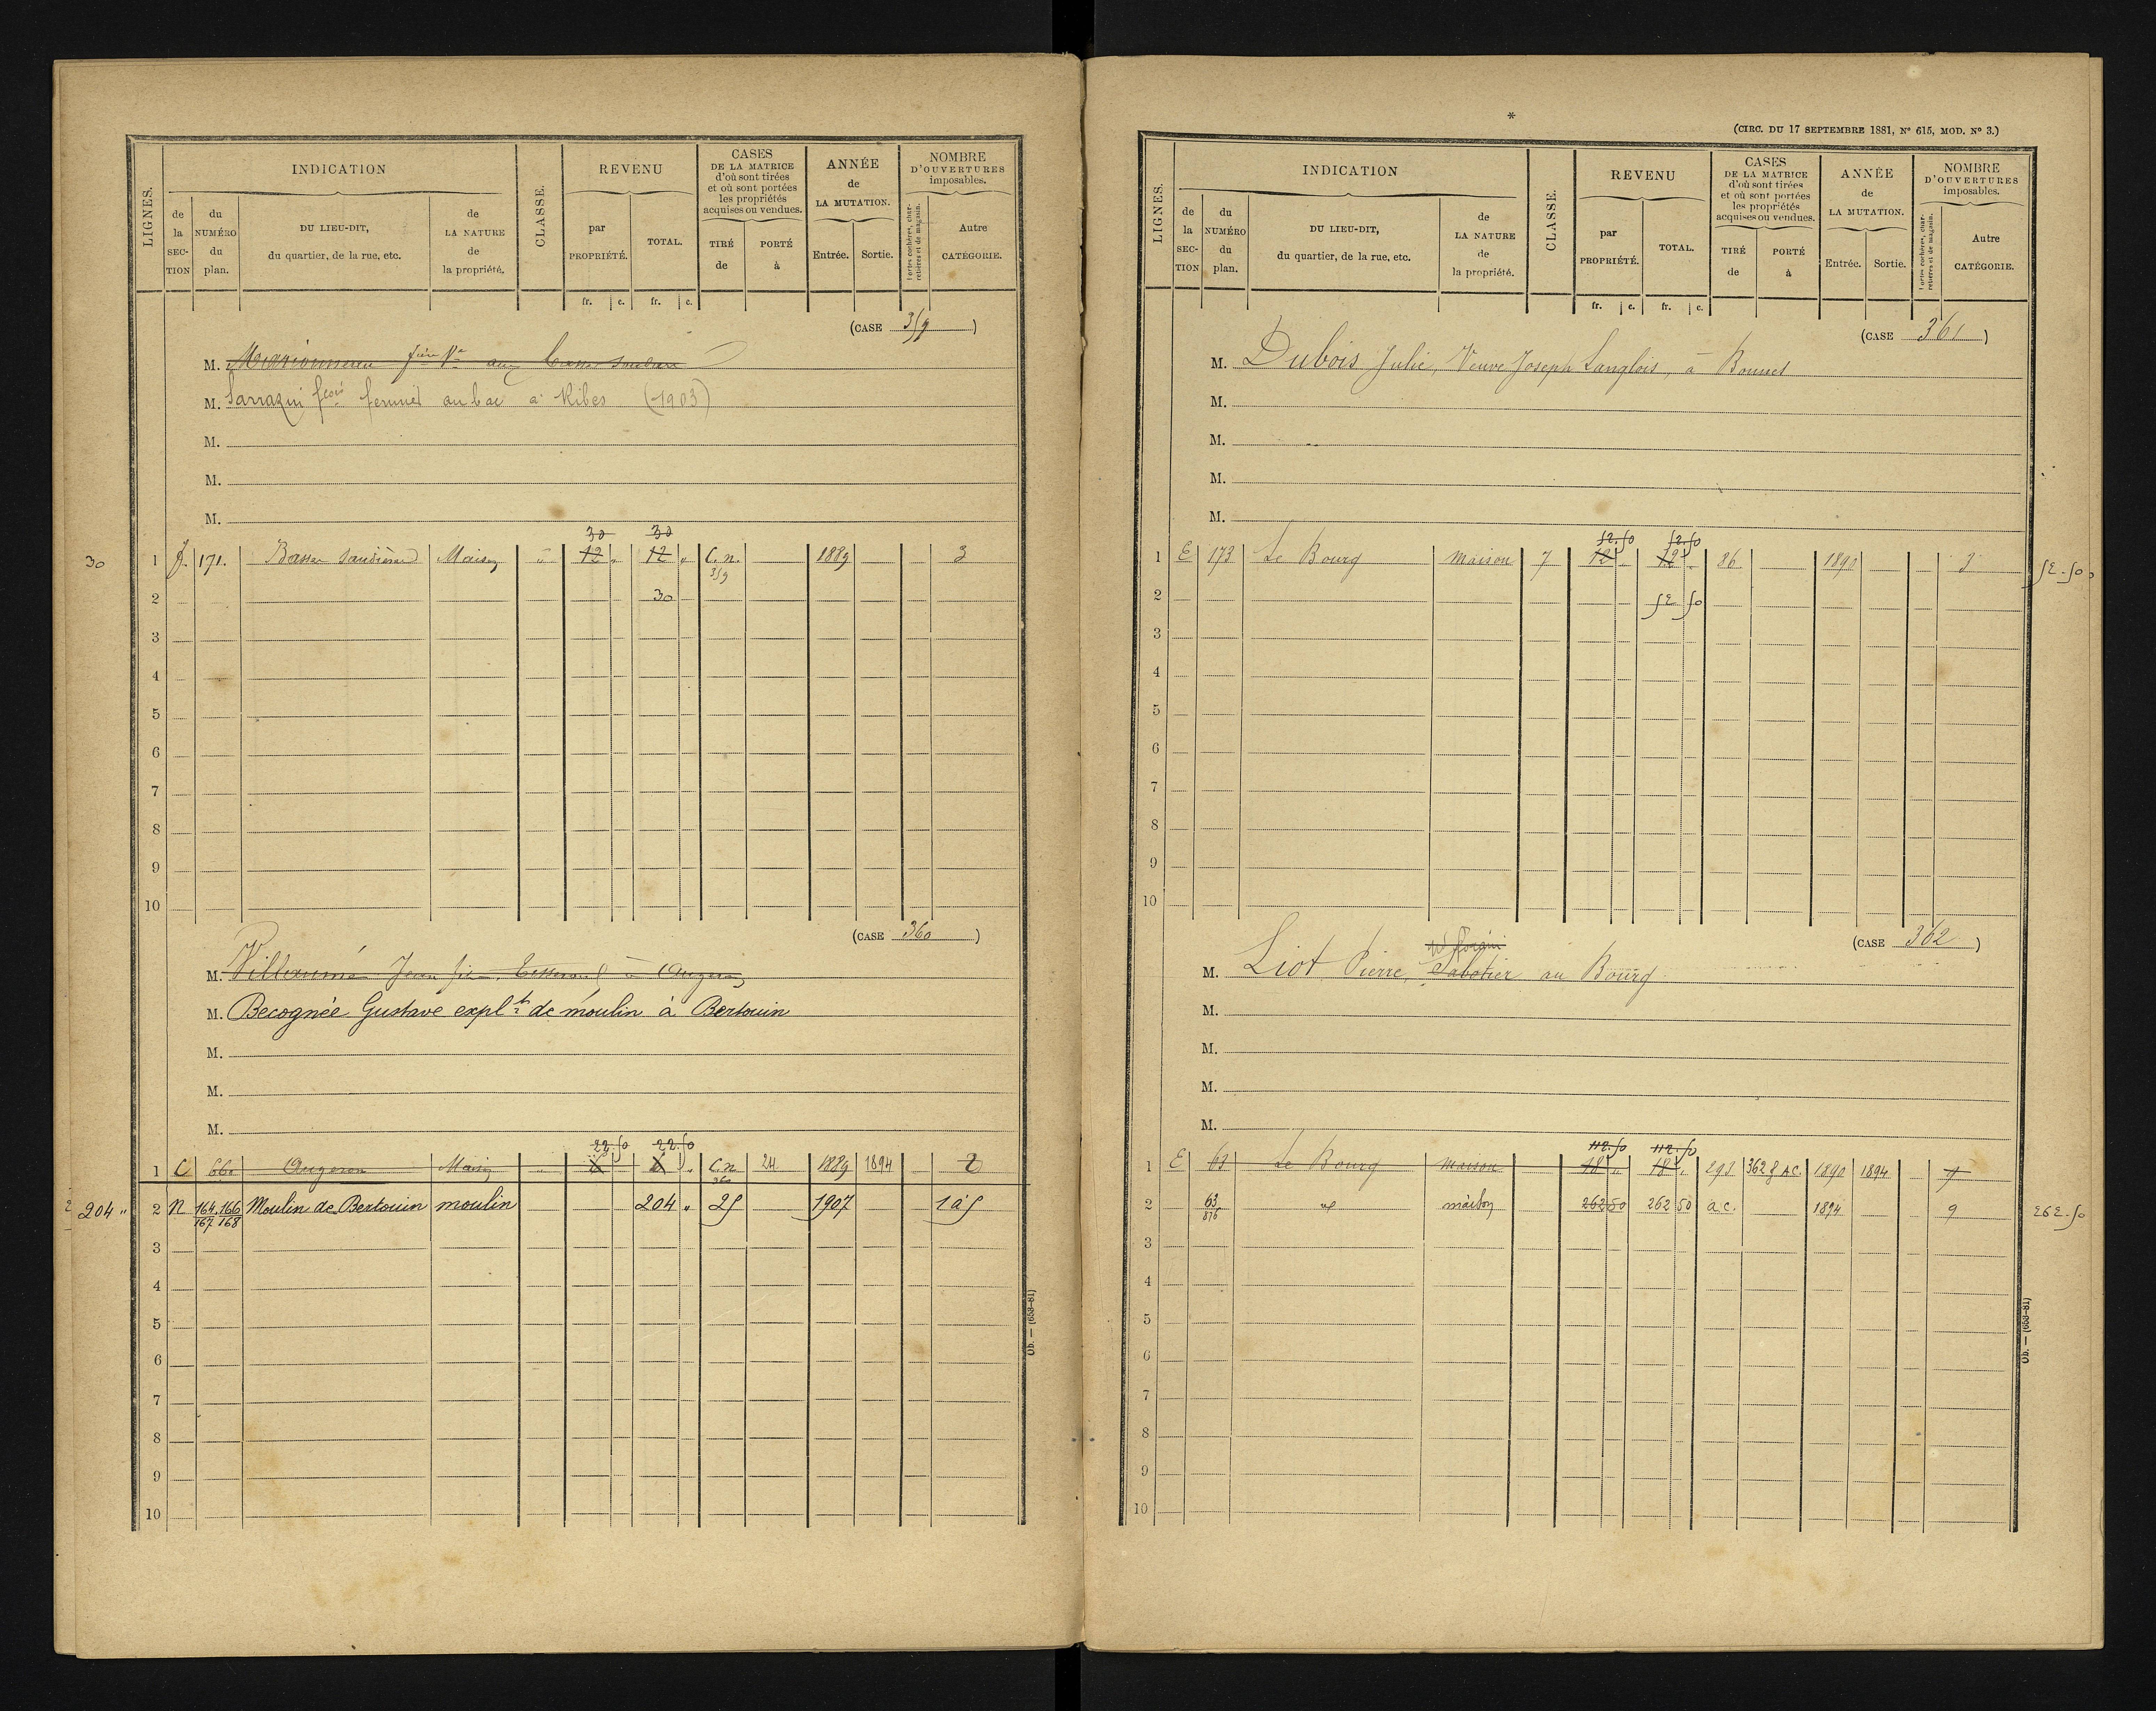 LIGNES.
INDICATION
de la SECTION
du NUMÉRO du plan.
DU LIEU-DIT, du quartier, de la rue, etc.
de LA NATURE de la propriété.
CLASSE.
REVENU
par PROPRIÉTÉ.
TOTAL.
fr. c. fr. c.
CASES DE LA MATRICE d'où sont tirées et où sont portées les propriétés acquises ou vendues.
TIRÉ de
PORTÉ à
ANNÉE de LA MUTATION.
Entrée. Sortie.
NOMBRE D'OUVERTURES imposables.
Portes cochères, charretières et de magasin.
Autre CATÉGORIE.
(CASE 359)
M.
M. Sarrazin au bac à Ribes (1903)
M.
M.
M.
30 30
30 1 171. Basse Maison 12 " 12 " C. n. 359 1889 3
2 30
3
4
5
6
7
8
9
10
(CASE 360)
M. Villaumé Jean
M. Becognée Gustave expl.t de moulin à Bertouin
M.
M.
M.
22.50 22.50
1 C 660 Augeron Maison " C. n. 360 24 1889 1894 2
204 " 2 N 164.166 167 168 Moulin de Bertouin moulin 204 " 25 1907 1 à 5
3
4
5
6
7
8
9
10
Ob. — (653-81)
*
(CIRC. DU 17 SEPTEMBRE 1881, N° 615, MOD. N° 3.)
LIGNES.
INDICATION
de la SECTION
du NUMÉRO du plan.
DU LIEU-DIT, du quartier, de la rue, etc.
de LA NATURE de la propriété.
CLASSE.
REVENU
par PROPRIÉTÉ.
TOTAL.
fr. c. fr. c.
CASES DE LA MATRICE d'où sont tirées et où sont portées les propriétés acquises ou vendues.
TIRÉ de
PORTÉ à
ANNÉE de LA MUTATION.
Entrée. Sortie.
NOMBRE D'OUVERTURES imposables.
Portes cochères, charretières et de magasin.
Autre CATÉGORIE.
(CASE 361)
M. Dubois Julie, Veuve Joseph Langlois, à Bonnes
M.
M.
M.
M.
52.50 52.50
1 E 173 Le Bourg maison 7 12 " 12 " 86 1890 3 52.50
2 52 50
3
4
5
6
7
8
9
10
(CASE 362)
M. Liot Pierre, Sabotier au Bourg
M.
M.
M.
M.
112.50 112.50
1 E 63 Le Bourg maison 18 " 18 " 293 362 8 AC. 1890 1894 7
2 63 876 id maison 262 50 262 50 a c. 1894 9 262.50
3
4
5
6
7
8
9
10
Ob. — (653-81)